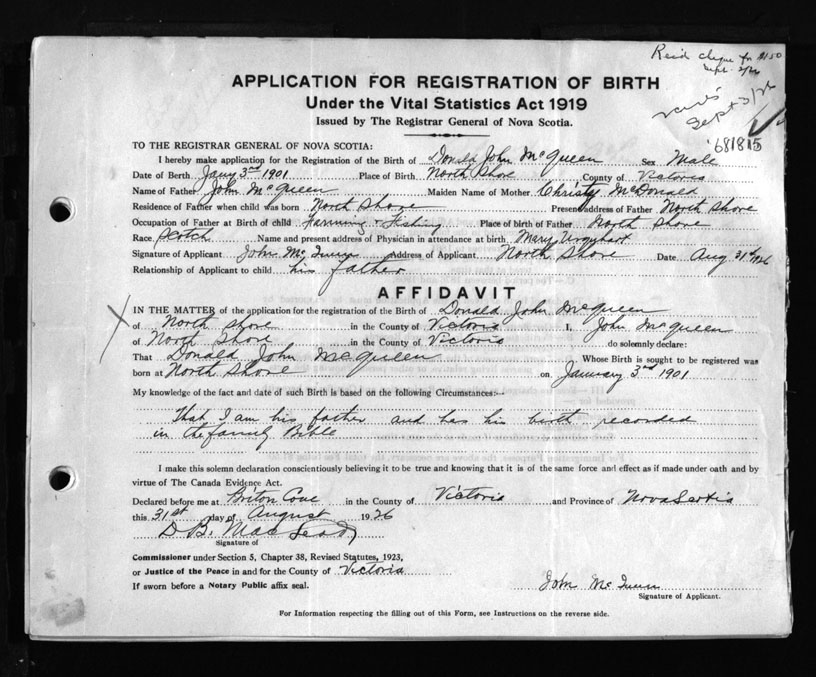 Recd cheque for $1.50
Sept. 3/26
Sept 3/26
681815
APPLICATION FOR REGISTRATION OF BIRTH
Under the Vital Statistics Act 1919
Issued by The Registrar General of Nova Scotia.
TO THE REGISTRAR GENERAL OF NOVA SCOTIA:
I hereby make application for the Registration of the Birth of Donald John McQueen Sex Male
Date of Birth Jany 3rd 1901 Place of Birth North Shore County of Victoria
Name of Father John McQueen Maiden Name of Mother Christy McDonald
Residence of Father when child was born North Shore Present address of Father North Shore
Occupation of Father at Birth of child Farming & Fishing Place of birth of Father North Shore
Race Scotch Name and present address of Physician in attendance at birth Mary Urquhart
Signature of Applicant John McQueen Address of Applicant North Shore Date Aug 31st 1926
Relationship of Applicant to child his father
AFFIDAVIT
IN THE MATTER of the application for the registration of the Birth of Donald John McQueen
of North Shore in the County of Victoria I, John McQueen
of North Shore in the County of Victoria do solemnly declare:
That Donald John McQueen Whose Birth is sought to be registered was
born at North Shore on January 3rd 1901
My knowledge of the fact and date of such Birth is based on the following Circumstances:—
That I am his father and has his birth recorded
in the family Bible
I make this solemn declaration conscientiously believing it to be true and knowing that it is of the same force and effect as if made under oath and by
virtue of The Canada Evidence Act.
Declared before me at Briton Cove in the County of Victoria and Province of Nova Scotia
this 31st day of August 1926
D. B. MacLeod
Signature of
Commissioner under Section 5, Chapter 38, Revised Statutes, 1923,
or Justice of the Peace in and for the County of Victoria
If sworn before a Notary Public affix seal.
John McQueen
Signature of Applicant.
For Information respecting the filling out of this Form, see Instructions on the reverse side.